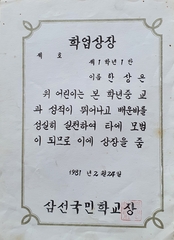 학업상장
제 호
제 1 학년 1 반
이름 한상은
위 어린이는 본 학년중 교
과 성적이 뛰어나고 배운바를
성실히 실천하여 타에 모범
이 되므로 이에 상장을 줌
1981 년 2 월 24 일
삼선국민학교장